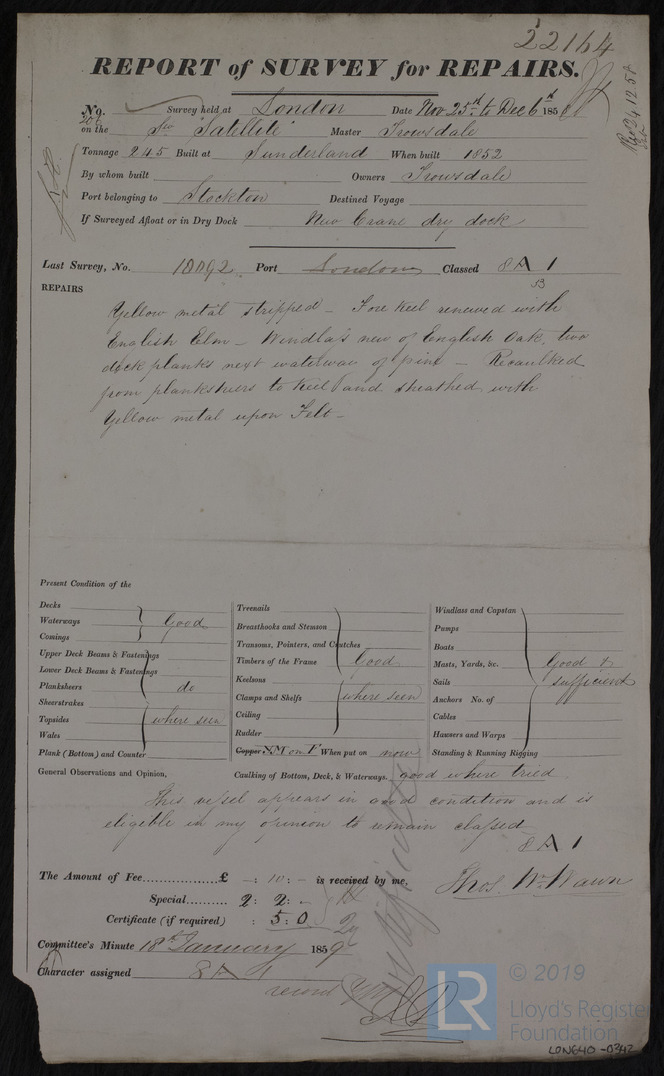 22164
REPORT of SURVEY for REPAIRS.
No. 206 Survey held at London Date Nov 25th to Dec 6th 1858
on the Sr "Satellite" Master Trowsdale
Tonnage 245 Built at Sunderland When built 1852
By whom built Owners Trowsdale
Port belonging to Stockton Destined Voyage
If Surveyed Afloat or in Dry Dock New Crane dry dock
Last Survey, No. 18092 Port London Classed 8 A 1
REPAIRS
Yellow metal stripped - Fore keel renewed with
English Elm - Windlass new of English Oak, two
deck planks next waterway of pine - Recaulked
from planksheers to keel and sheathed with
Yellow metal upon Felt -
Present Condition of the
Decks
Waterways Good
Comings
Upper Deck Beams & Fastenings
Lower Deck Beams & Fastenings
Planksheers do
Sheerstrakes
Topsides where seen
Wales
Plank (Bottom) and Counter
Treenails
Breasthooks and Stemson
Transoms, Pointers, and Crutches
Timbers of the Frame Good
Keelsons
Clamps and Shelfs where seen
Ceiling
Rudder
Copper YM on F When put on now
Windlass and Capstan
Pumps
Boats
Masts, Yards, &c. Good &
Sails sufficient
Anchors No. of
Cables
Hawsers and Warps
Standing & Running Rigging
General Observations and Opinion, Caulking of Bottom, Deck, & Waterways. good where tried
This vessel appears in good condition and is
eligible in my opinion to remain classed
8 A 1
The Amount of Fee.................. £ -: 10: - is received by me,
Thos. Wm. Wawn
Special.......... 2: 2: -
Certificate (if required) : 5: 0
Committee's Minute 18th January 1859
Character assigned 8 A 1
record YM
© 2019
LR
Lloyd's Register
Foundation
LON640-0342